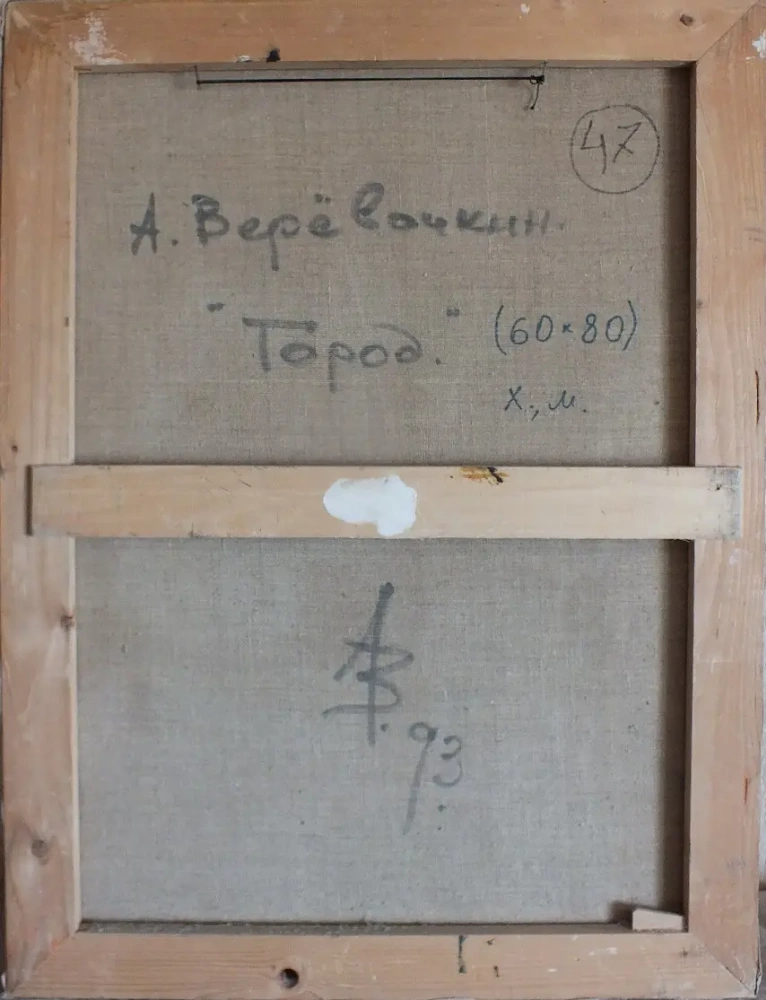 47
А. Верёвочкин.
"Город." (60×80)
х., м.
АВ.93